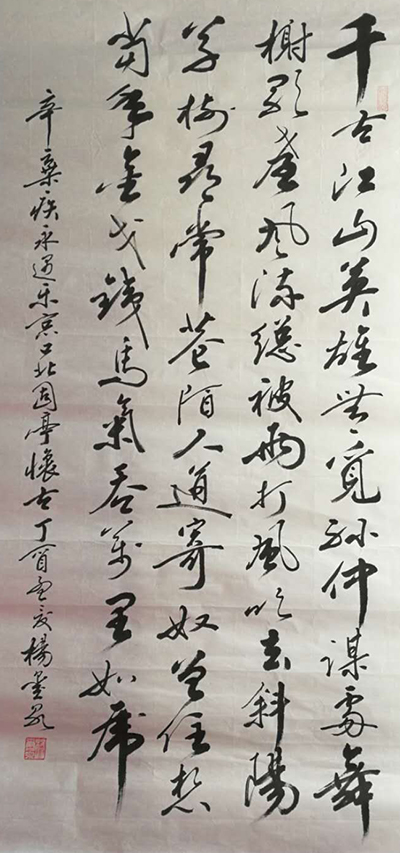 千古江山英雄無覓孫仲謀處舞
榭歌臺風流總被雨打風吹去斜陽
草樹尋常巷陌人道寄奴曾住想
當年金戈鐵馬氣吞萬里如虎
辛棄疾永遇乐京口北固亭懷古丁酉孟夏楊